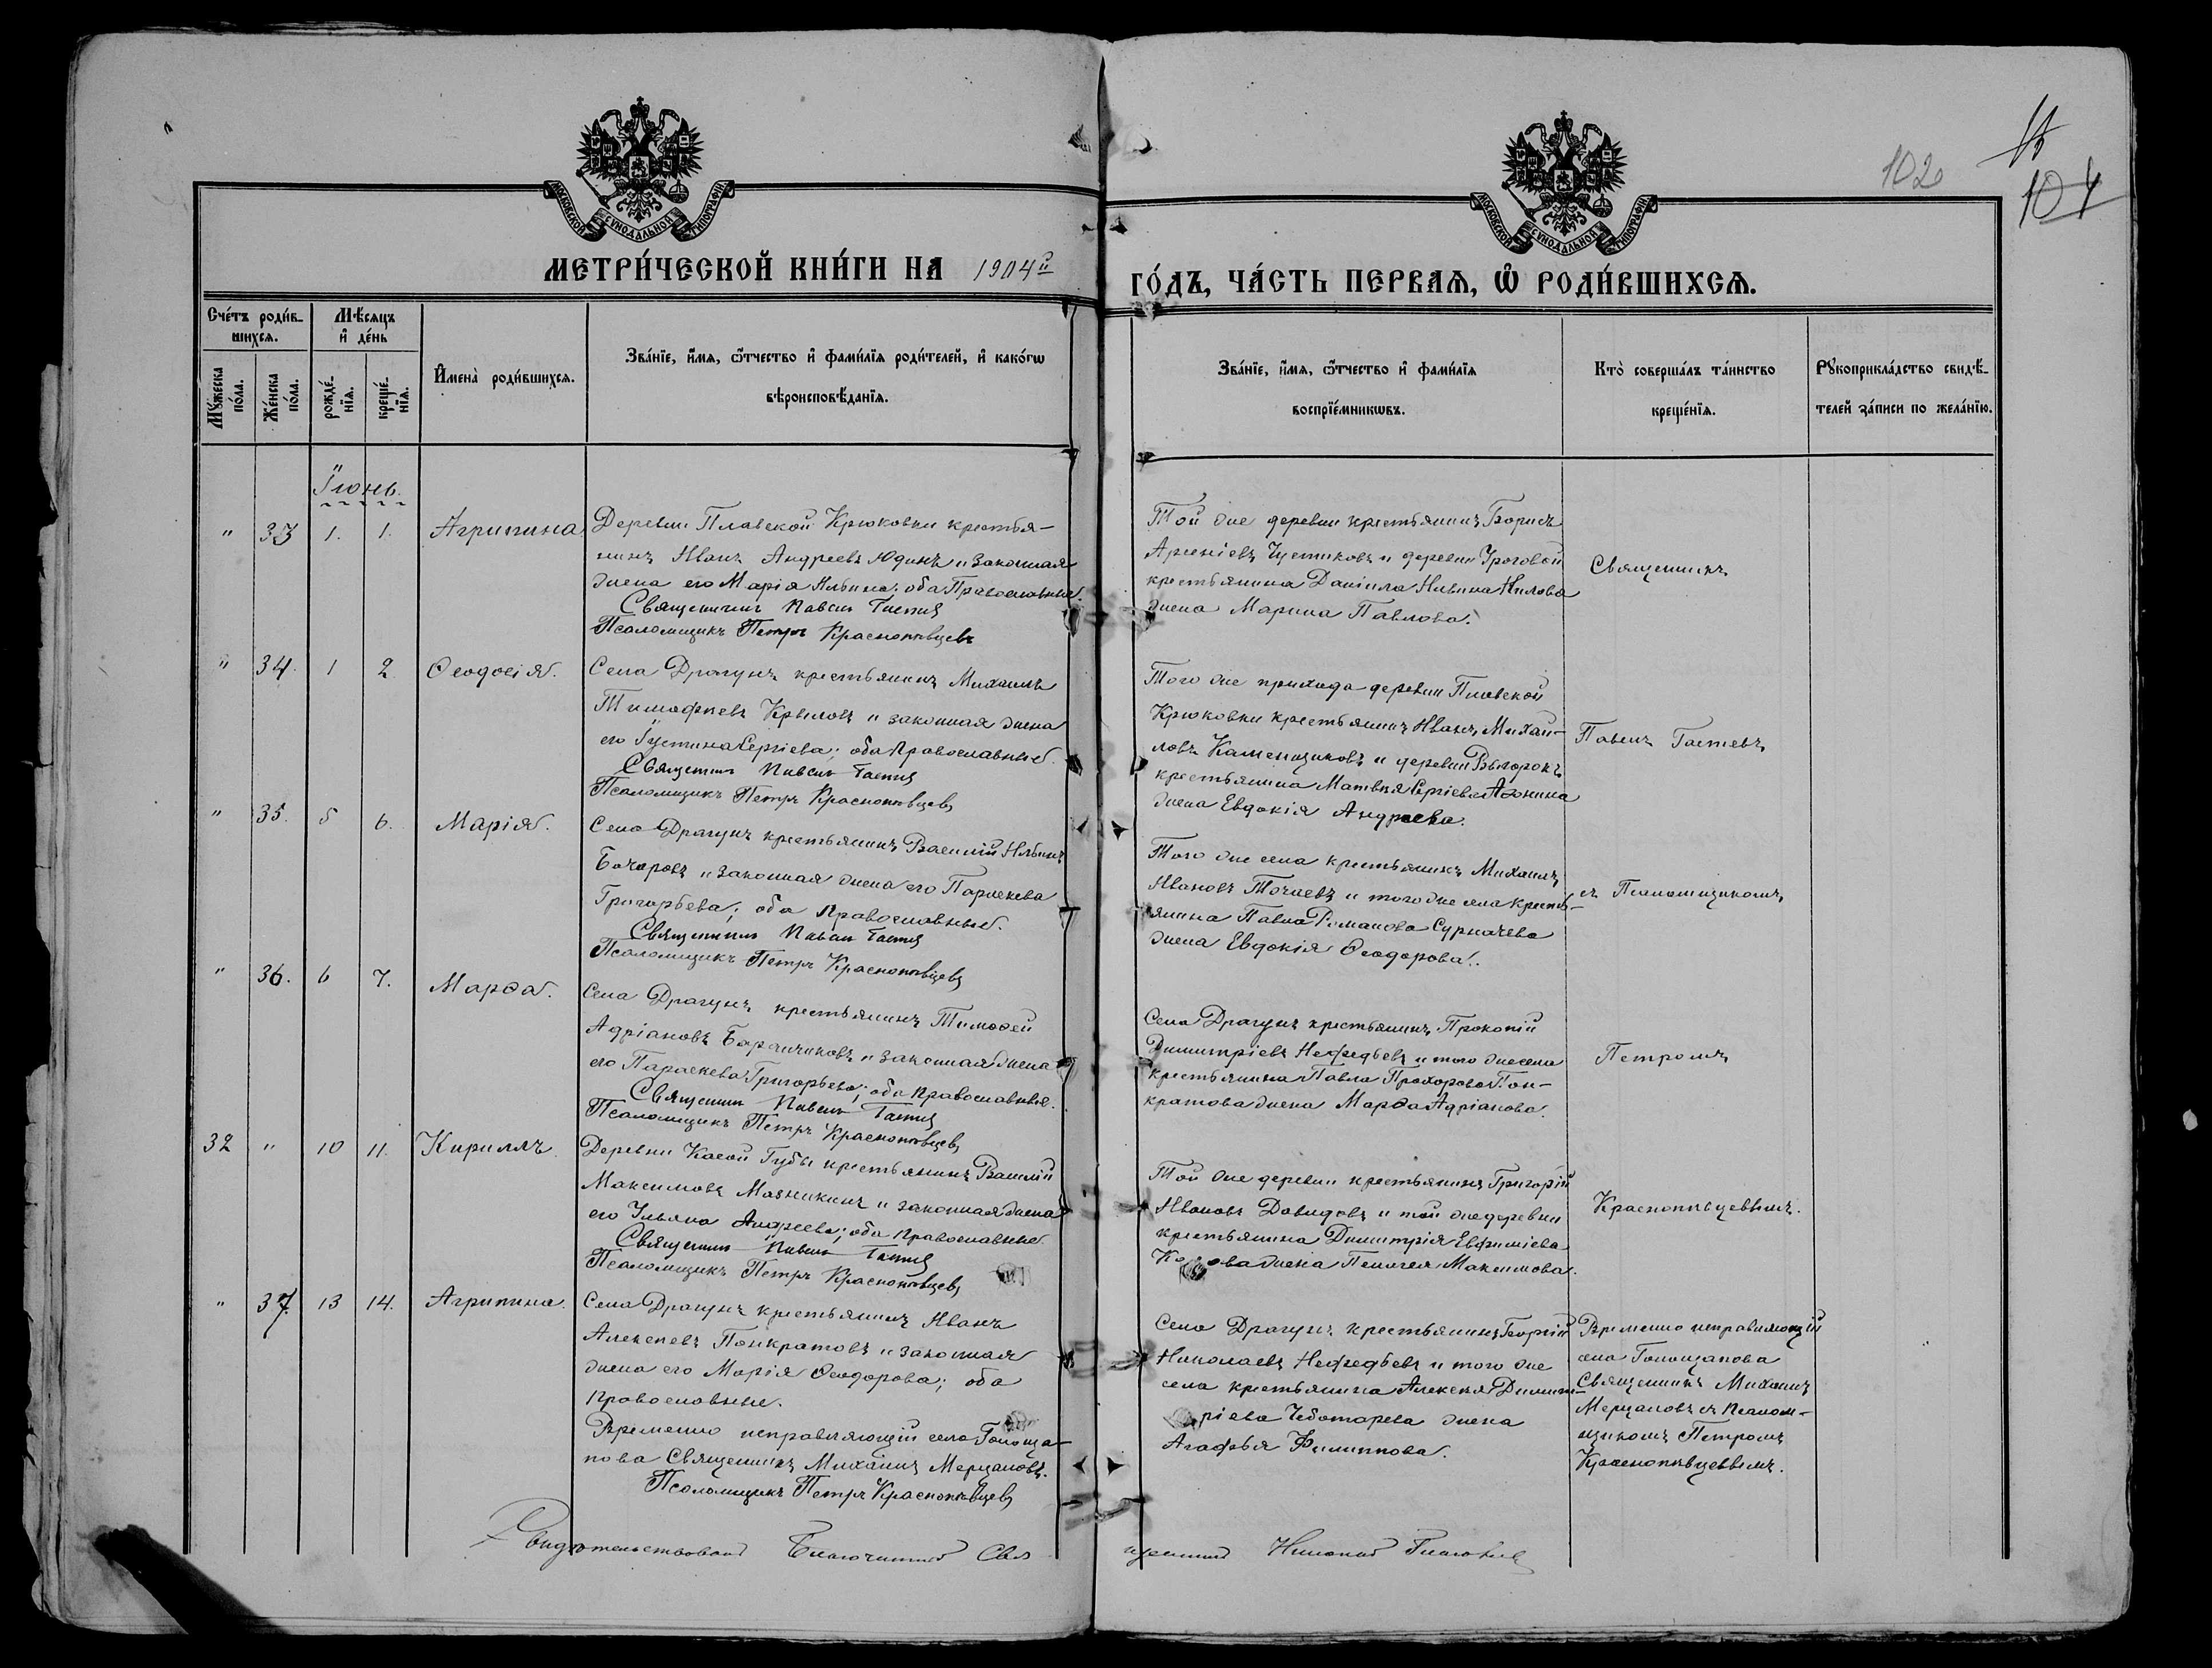 102
104
МОСКОВСКОЙ СѴНОДАЛЬНОЙ ТИПОГРАФІИ
МОСКОВСКОЙ СѴНОДАЛЬНОЙ ТИПОГРАФІИ
МЕТРИ́ЧЕСКОЙ КНИ́ГИ НА 1904й
ГО́ДЪ, ЧА́СТЬ ПЕРВАѦ, Ѡ҆ РОДИ́ВШИХСѦ.
Сче́тъ роди́в-
шихсѧ.
Мꙋ́жеска по́ла.
Же́нска по́ла.
Мѣ́сѧцъ
и҆ де́нь
рожде́-
нїѧ.
креще́-
нїѧ.
И҆мена̀ роди́вшихсѧ.
Зва́нїе, и҆́мѧ, ѻ҆́тчество и҆ фами́лїѧ роди́телей, и҆ како́гѡ
вѣроисповѣ́данїѧ.
Зва́нїе, и҆́мѧ, ѻ҆́тчество и҆ фами́лїѧ
воспрїе́мникѡвъ.
Кто̀ соверша́лъ та́инство
креще́нїѧ.
Рꙋкоприкла́дство свидѣ́-
телей за́писи по жела́нїю.
Іюнь.
" 33 1. 1. Агрипина
Деревни Плавской Крюковки крестья-
нинъ Иванъ Андреевъ Юдинъ и законная
жена его Марія Ильина; оба Православные.
Священникъ Павелъ Гастевъ
Псаломщикъ Петръ Краснопѣвцевъ
Той же деревни крестьянинъ Борисъ
Арсеніевъ и деревни
крестьянина Даніила Ильина
жена Марина Павлова.
Священникъ
" 34. 1 2 Ѳеодосія.
Села Драгунъ крестьянинъ Михаилъ
Тимофеевъ Крыловъ и законная жена
его Іустина Сергіева; оба Православные.
Священникъ Павелъ Гастевъ
Псаломщикъ Петръ Краснопѣвцевъ
Того же прихода деревни Плавской
Крюковки крестьянинъ Иванъ Михаи-
ловъ Каменщиковъ и деревни
крестьянина Матвѣя Сергіева Аѳонина
жена Евдокія Андреева.
Павелъ Гастевъ
" 35. 5 6. Марія.
Села Драгунъ крестьянинъ Василій Ильинъ
Бочаровъ и законная жена его Параскева
Григорьева; оба Православные.
Священникъ Павелъ Гастевъ
Псаломщикъ Петръ Краснопѣвцевъ
Того же села крестьянинъ Михаилъ
Ивановъ и того же села кресть-
янина Павла Романова Сурначева
жена Евдокія Ѳеодорова.
съ Псаломщикомъ
" 36. 6 7. Марѳа.
Села Драгунъ крестьянинъ Тимоѳей
Адріановъ Баранчиковъ и законная жена
его Параскева Григорьева; оба Православные.
Священникъ Павелъ Гастевъ
Псаломщикъ Петръ Краснопѣвцевъ
Села Драгунъ крестьянинъ Прокопій
Димитріевъ Нефедьевъ и того же села
крестьянина Павла Прохорова Пон-
кратова жена Марѳа Адріанова.
Петромъ
32 " 10 11. Кириллъ.
Деревни Косой Губы крестьянинъ Василій
Максимовъ и законная жена
его Ульяна Андреева; оба Православные.
Священникъ Павелъ Гастевъ
Псаломщикъ Петръ Краснопѣвцевъ
Той же деревни крестьянинъ Григорій
Ивановъ Давидовъ и той же деревни
крестьянина Димитрія Евфиміева
жена Пелагея Максимова.
Краснопѣвцевымъ.
" 37. 13 14. Агрипина.
Села Драгунъ крестьянинъ Иванъ
Алексеевъ Понкратовъ и законная
жена его Марія Ѳеодорова; оба
Православные.
Временно исправляющій села Голоща-
пова Священникъ Михаилъ Мерцаловъ.
Псаломщикъ Петръ Краснопѣвцевъ
Села Драгунъ крестьянинъ Георгій
Николаевъ Нефедьевъ и того же
села крестьянина Алексея Димит-
ріева Чеботарева жена
Агафья Филиппова.
Временно исправляющій
села Голощапова
Священникъ Михаилъ
Мерцаловъ съ Псалом-
щикомъ Петромъ
Краснопѣвцевымъ.
Свидѣтельствовалъ Благочинный Свя
щенникъ Николай